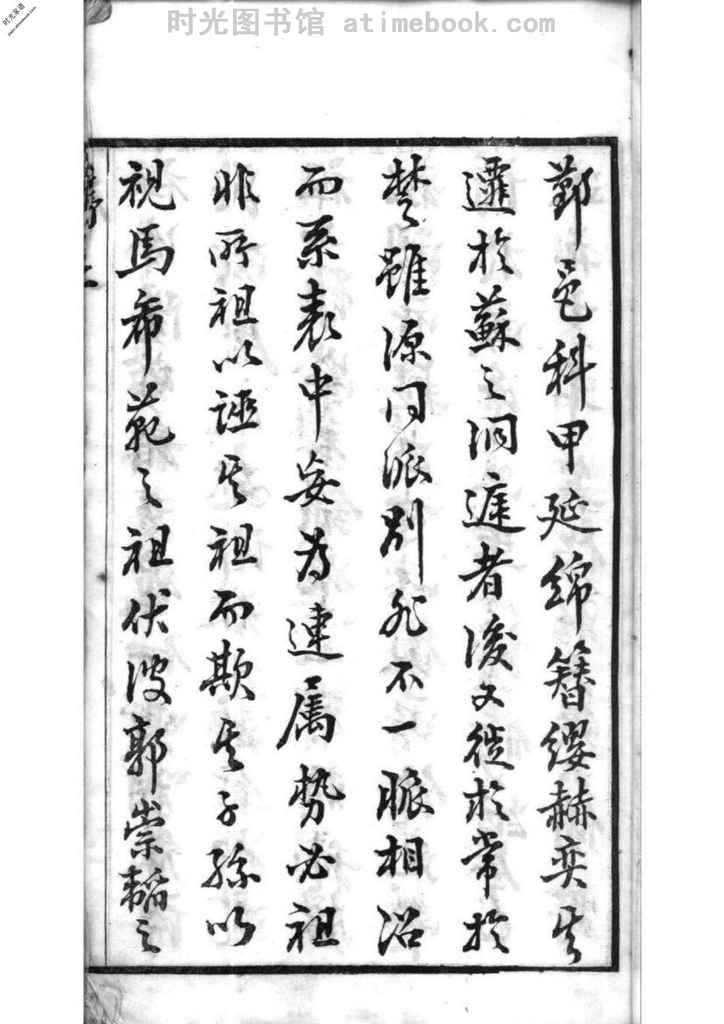 时光图书馆 atimebook.com
鄞邑科甲延綿簪纓赫奕其
遷於蘇之洞庭者後又徙於常於
楚雖源同派別然不一脈相沿
而系表中妄為連屬勢必祖
非所祖以誣其祖而欺其子孫以
視馬希范之祖伏波郭崇韜之